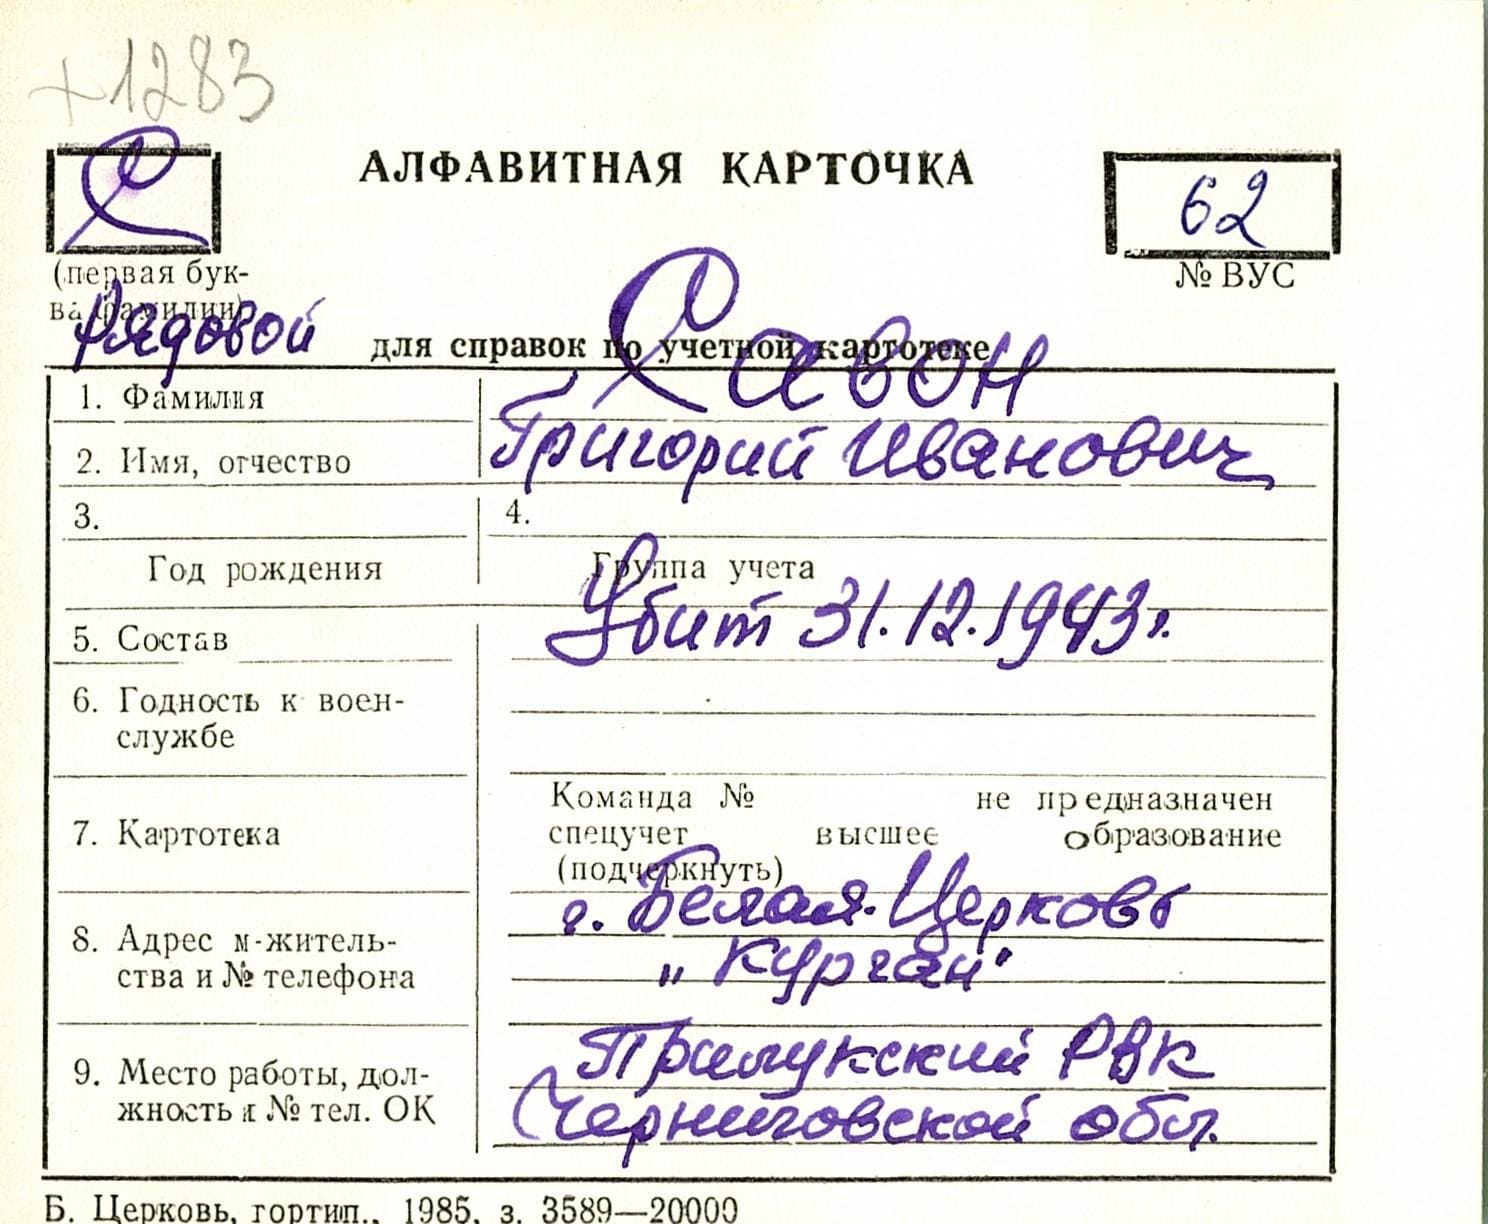 +1283
С
АЛФАВИТНАЯ КАРТОЧКА
62
(первая бук-
ва фамилии)
№ ВУС
Рядовой
для справок по учетной картотеке
1. Фамилия
Савон
2. Имя, отчество
Григорий Иванович
3.
4.
Год рождения
Группа учета
Убит 31.12.1943 г.
5. Состав
6. Годность к воен-
службе
7. Картотека
Команда № не предназначен
спецучет высшее образование
(подчеркнуть)
8. Адрес м-житель-
ства и № телефона
г. Белая-Церковь
"Курган"
9. Место работы, дол-
жность и № тел. ОК
Прилукский РВК
Черниговской обл.
Б. Церковь, гортип., 1985, з. 3589—20000